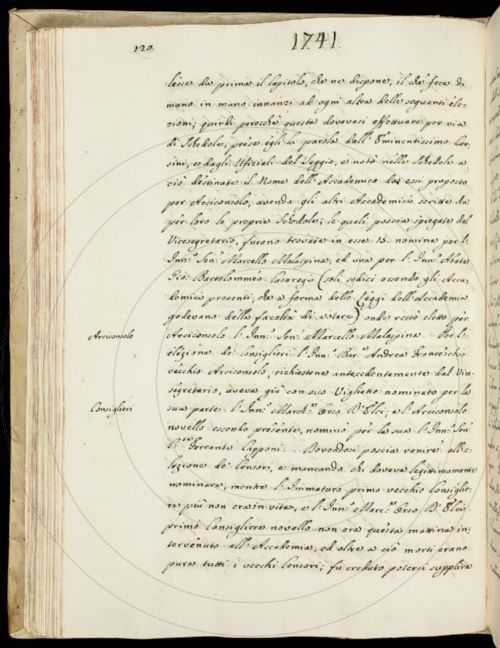 120.
1741.
lesse da prima il Capitolo, che ne dispone, il che fece di
mano in mano innanzi ad ogni altra delle seguenti ele-
zioni; quindi perocchè questa dovevasi effettuare per via
di Schedole, prese egli le parola dall' Eminentissimo Cor-
sini, e dagli Ufiziali del Seggio, e notò nelle Schedole a
ciò destinate il Nome dell' Accademico da essi proposto
per Arciconsolo, avendo gli altri Accademici scritto da
per loro le proprie Schedole; le quali poscia spiegate dal
Vicesegretario, furono trovate in esse 15. nomine per l'
Inn.º Sen.º Marcello Malaspina, ed una per l' Inn.º Abate
Gio: Bartolommeo Casaregi (soli sedici essendo gli Acca-
demici presenti, che a forma delle Leggi dell' Accademia
godevano della facoltà di votare) onde restò eletto per
Arciconsolo
Arciconsolo l' Inn.º Sen.º Marcello Malaspina. Per l'
elezione de' Consiglieri l' Inn.º Bar.º Andrea Franceschi
vecchio Arciconsolo, richiestone antecedentemente dal Vice-
segretario, aveva già con suo Viglietto nominato per la
Consiglieri
sua parte l' Inn.º March.º Orso D' Elci, e l' Arciconsolo
novello essendo presente, nominò per la sua l' Inn.º Sen.
Ferrante Capponi. Dovendosi poscia venire all' e-
lezione de' Censori, e mancando chi doveva legitimamente
nominare, mentre l' Immaturo primo vecchio Consiglie-
re più non era in vita, e l' Inn.º Marc.º Orso D' Elci
primo Consigliere novello non era questa mattina in-
tervenuto all' Accademia, ed oltre a ciò morti erano
pure tutti i vecchi Censori; fu creduto potersi supplire